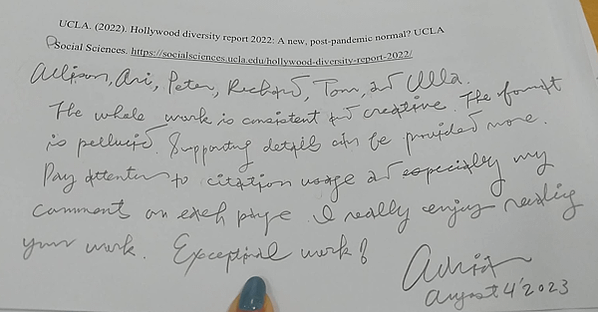 UCLA. (2022). Hollywood diversity report 2022: A new, post-pandemic normal? UCLA
Social Sciences. https://socialsciences.ucla.edu/hollywood-diversity-report-2022/
Allison, Ari, Peter, Richard, Tom, and Ulla.
The whole work is consistent and creative. The format
is pellucid. Supporting details can be provided more.
Pay attention to citation usage and especially my
comments on each page. I really enjoy reading
your work. Exceptional work!
August 4' 2023